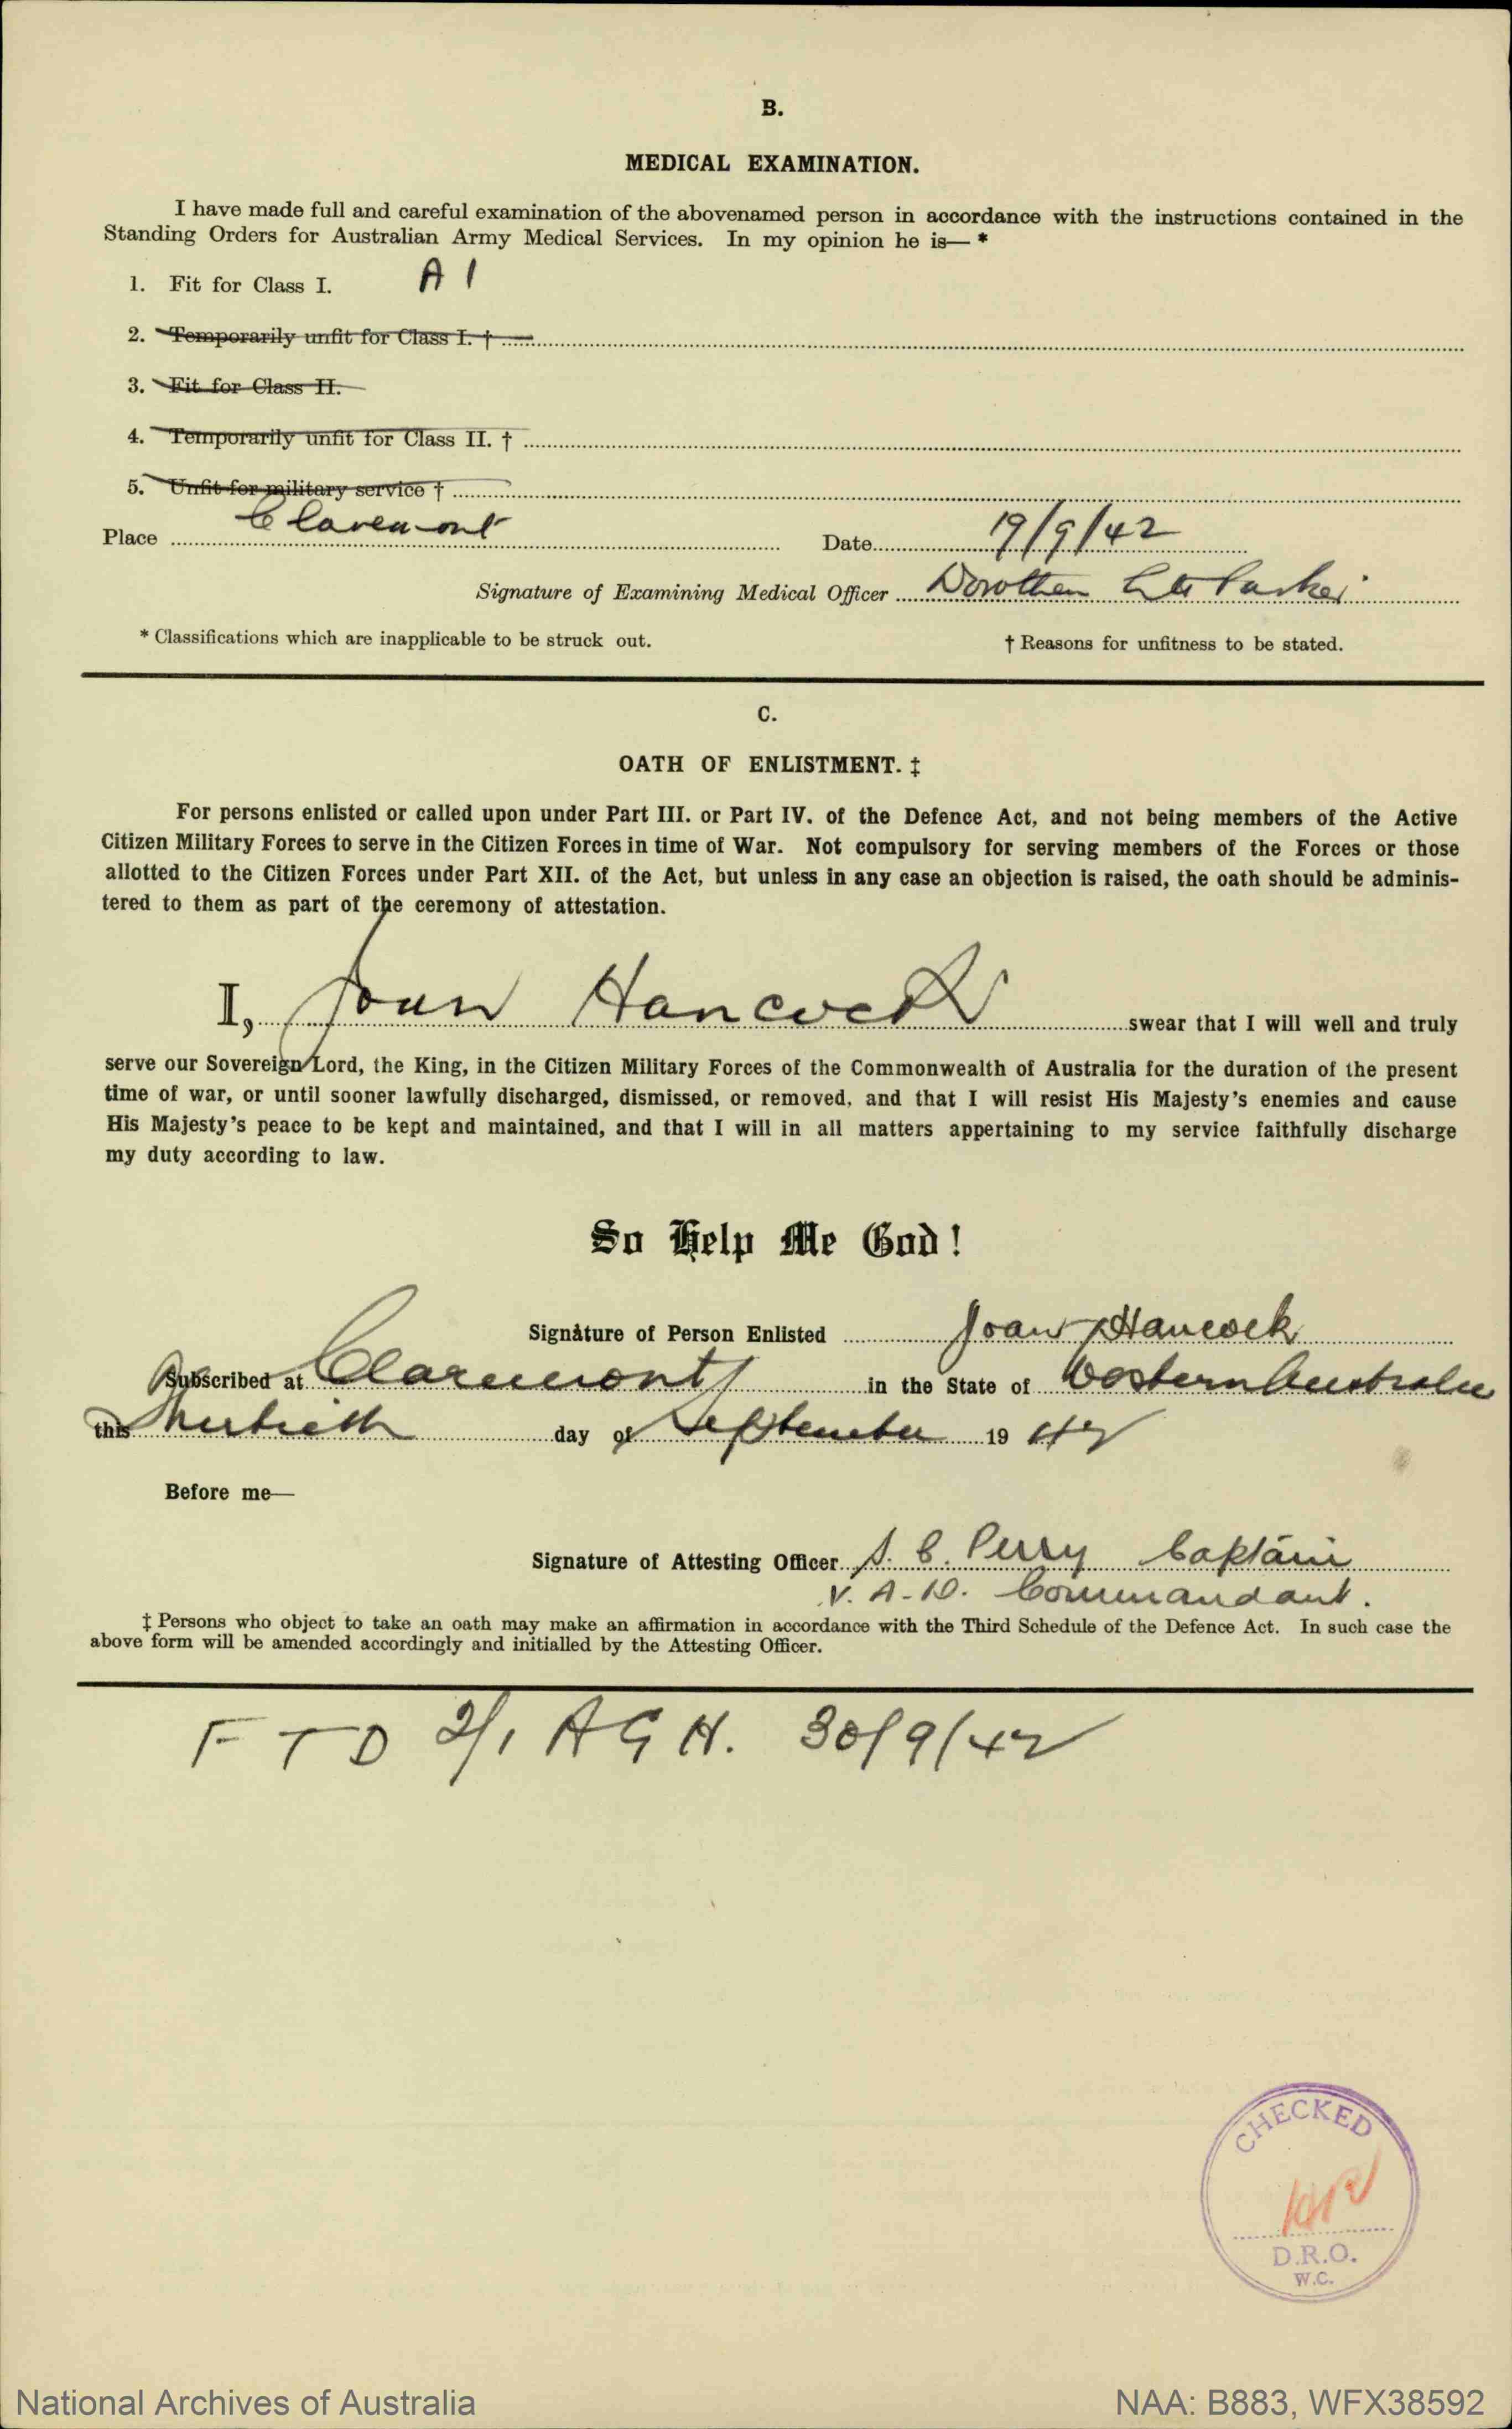 B.
MEDICAL EXAMINATION.
I have made full and careful examination of the abovenamed person in accordance with the instructions contained in the
Standing Orders for Australian Army Medical Services. In my opinion he is— *
1. Fit for Class I. A 1
2. Temporarily unfit for Class I. †
3. Fit for Class II.
4. Temporarily unfit for Class II. †
5. Unfit for military service †
Place Claremont Date 19/9/42
Signature of Examining Medical Officer Dorothea Parker
* Classifications which are inapplicable to be struck out. † Reasons for unfitness to be stated.
C.
OATH OF ENLISTMENT. ‡
For persons enlisted or called upon under Part III. or Part IV. of the Defence Act, and not being members of the Active
Citizen Military Forces to serve in the Citizen Forces in time of War. Not compulsory for serving members of the Forces or those
allotted to the Citizen Forces under Part XII. of the Act, but unless in any case an objection is raised, the oath should be adminis-
tered to them as part of the ceremony of attestation.
I, Joan Hancock swear that I will well and truly
serve our Sovereign Lord, the King, in the Citizen Military Forces of the Commonwealth of Australia for the duration of the present
time of war, or until sooner lawfully discharged, dismissed, or removed, and that I will resist His Majesty's enemies and cause
His Majesty's peace to be kept and maintained, and that I will in all matters appertaining to my service faithfully discharge
my duty according to law.
So Help Me God!
Signature of Person Enlisted Joan Hancock
Subscribed at Claremont in the State of Western Australia
this Thirtieth day of September 19 42
Before me—
Signature of Attesting Officer Perry Captain
V. A. D. Commandant.
‡ Persons who object to take an oath may make an affirmation in accordance with the Third Schedule of the Defence Act. In such case the
above form will be amended accordingly and initialled by the Attesting Officer.
F T D 2/1 A G H. 30/9/42
CHECKED
D.R.O.
W.C.
National Archives of Australia NAA: B883, WFX38592